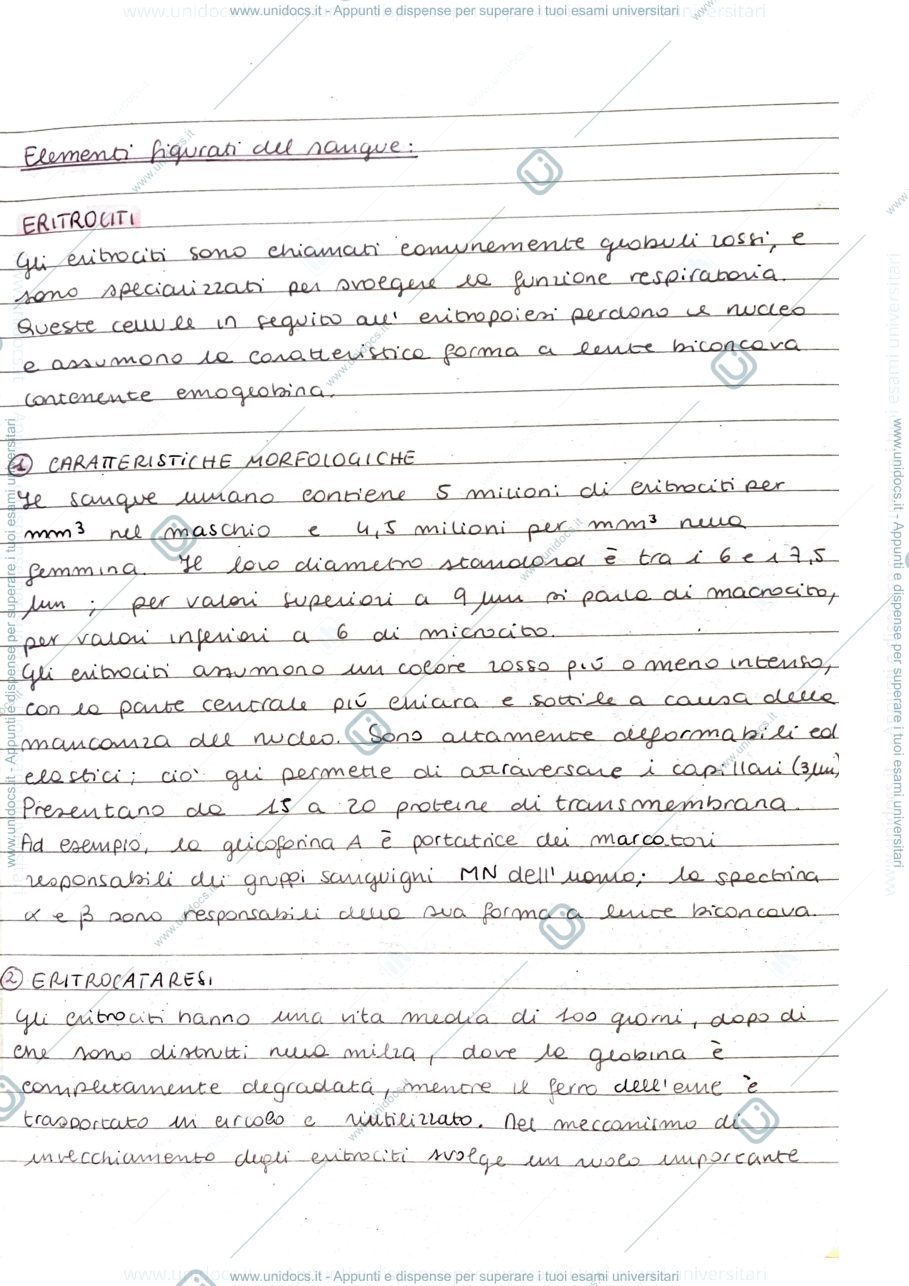 www.unidocs.it - Appunti e dispense per superare i tuoi esami universitari
Elementi figurati del sangue:
ERITROCITI
Gli eritrociti sono chiamati comunemente globuli rossi, e
sono specializzati per svolgere la funzione respiratoria.
Queste cellule in seguito all' eritropoiesi perdono il nucleo
e assumono la caratteristica forma a lente biconcava
contenente emoglobina.
1 CARATTERISTICHE MORFOLOGICHE
Il sangue umano contiene 5 milioni di eritrociti per
mm³ nel maschio e 4,5 milioni per mm³ nella
femmina. Il loro diametro standard è tra i 6 e i 7,5
µm ; per valori superiori a 9 µm si parla di macrocito,
per valori inferiori a 6 di microcito.
Gli eritrociti assumono un colore rosso più o meno intenso,
con la parte centrale più chiara e sottile a causa della
mancanza del nucleo. Sono altamente deformabili ed
elastici; cio' gli permette di attraversare i capillari (3µm)
Presentano da 15 a 20 proteine di transmembrana.
Ad esempio, la glicoforina A è portatrice dei marcatori
responsabili dei gruppi sanguigni MN dell'uomo; la spectrina
α e β sono responsabili della sua forma a lente biconcava.
2 ERITROCATARESI
Gli eritrociti hanno una vita media di 100 giorni, dopo di
che sono distrutti nella milza, dove la globina è
completamente degradata, mentre il ferro dell'eme è
trasportato in circolo e riutilizzato. Nel meccanismo di
invecchiamento degli eritrociti svolge un ruolo importante
www.unidocs.it - Appunti e dispense per superare i tuoi esami universitari